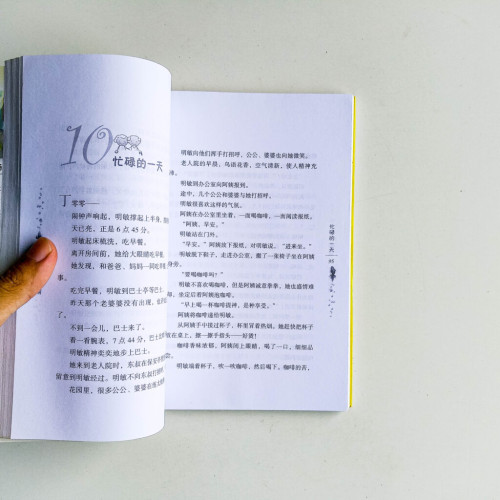 10
忙碌的一天
丁
零零——
闹钟声响起,明敏撑起上半身,
天已亮,正是6点45分。
明敏起床梳洗,吃早餐。
离开房间前,她给大眼睛吃早餐
她发现,和爸爸、妈妈一同吃
事。
吃完早餐,明敏到巴士亭等巴士
昨天那个老婆婆没有出现,
不到一会儿,巴士来了。
看一看腕表,7点44分,巴士
明敏精神奕奕地步上巴士。
她来到老人院时,东叔在保安亭
留意到明敏经过。明敏不向东叔打
花园里,很多公公、婆婆也
明敏向他们挥手打招呼,公公、婆婆也向她微笑。
老人院的早晨,鸟语花香,空气清新,使人精神充
沛。
明敏到办公室向阿姨报到。
途中,几个公公和婆婆与她打招呼。
明敏很喜欢这样的气氛。
阿姨在办公室里坐着,一面喝咖啡,一面阅读报纸。
“阿姨,早安。”
明敏站在门外。
“早安。”阿姨放下报纸,对明敏说,“进来坐。”
明敏脱下鞋子,走进办公室,搬了一张椅子坐在阿姨
身旁。
“要喝咖啡吗?”
明敏不喜欢喝咖啡,但是阿姨诚意拳拳,她也盛情难
却,坐定后看阿姨泡咖啡。
“早上喝一杯香醇咖啡,是种享受。”
阿姨将咖啡递给明敏。
从阿姨手中接过杯子,杯里冒着热烟,她赶快把杯子
放在桌上,擦一擦手指头——好烫!
咖啡香味浓郁,阿姨闭上眼睛,喝了一口,细细品
明敏端着杯子,吹一吹咖啡,然后喝下。咖啡的苦,
忙碌的一天